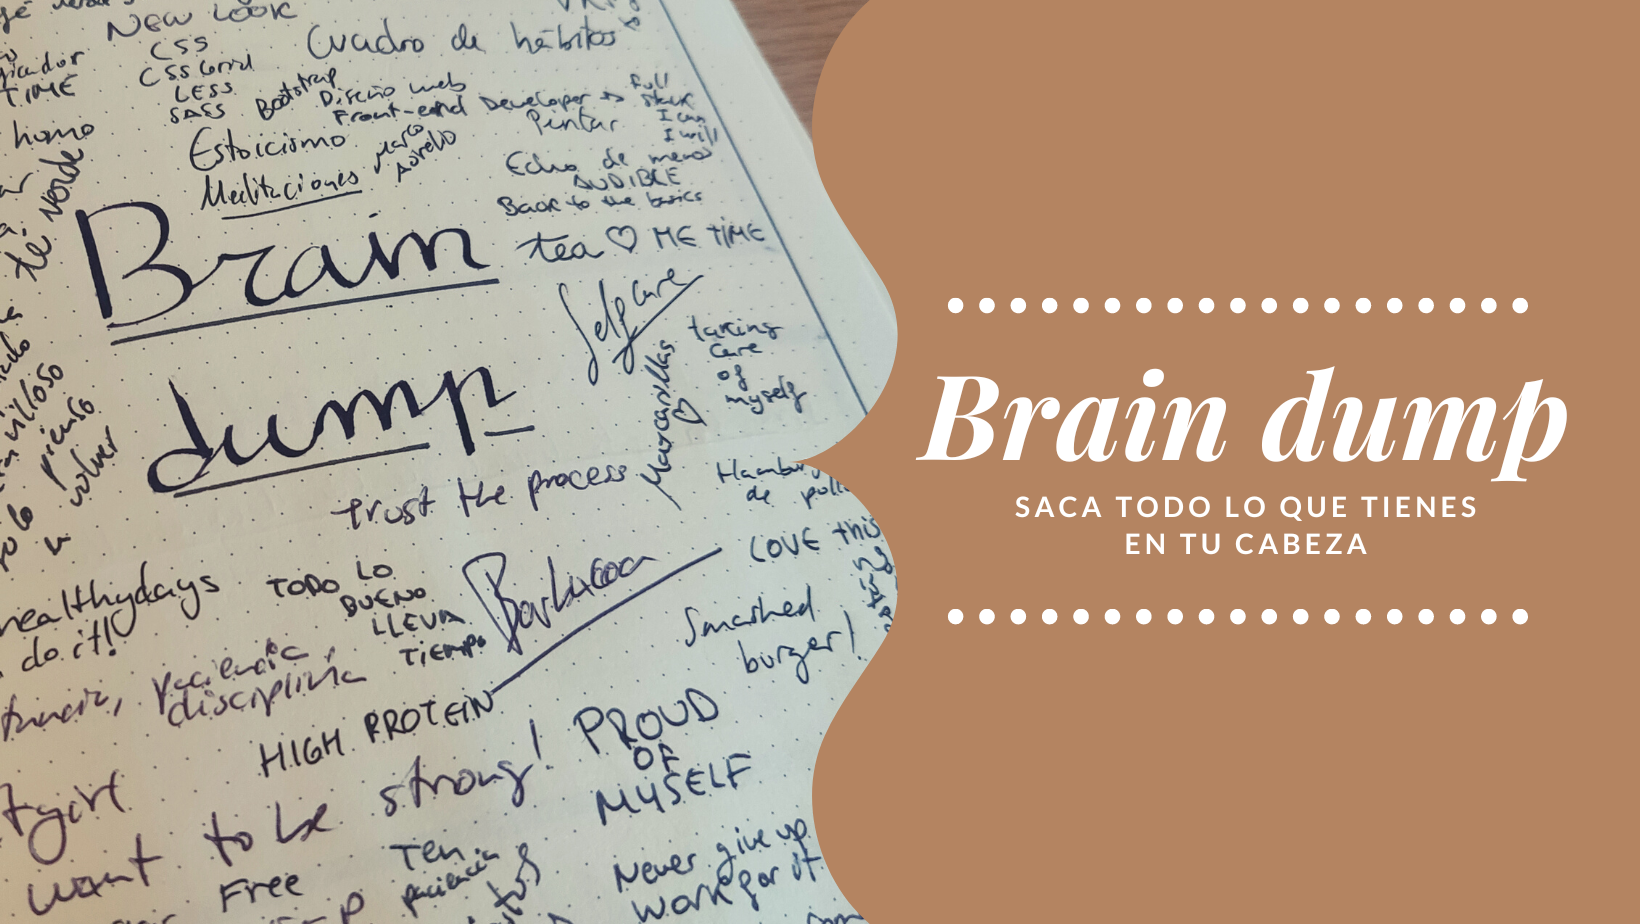 NEW LOOK
CSS
CSS Grid
LESS
SASS
Bootstrap
Diseño web
Front-end Developer
Full
stack
I can
I will
Cuadro de hábitos
TIME
homo
Estoicismo
Meditaciones
Marco
Aurelio
Pintar
Echo de menos
AUDIBLE
Back to the basics
tea ♡ ME TIME
té verde
Brain
dump
Self care
taking
care
of
myself
Mascarillas
♡
pienso
volver
trust the process
de
LOVE this
healthydays
do it!
TODO LO
BUENO
LLEVA
TIEMPO
Barbacoa
Smashed
burger!
paciencia,
disciplina
HIGH PROTEIN
PROUD
OF
MYSELF
want to be strong!
Free
Ten
paciencia
Never give up
work for it
Brain dump
SACA TODO LO QUE TIENES
EN TU CABEZA